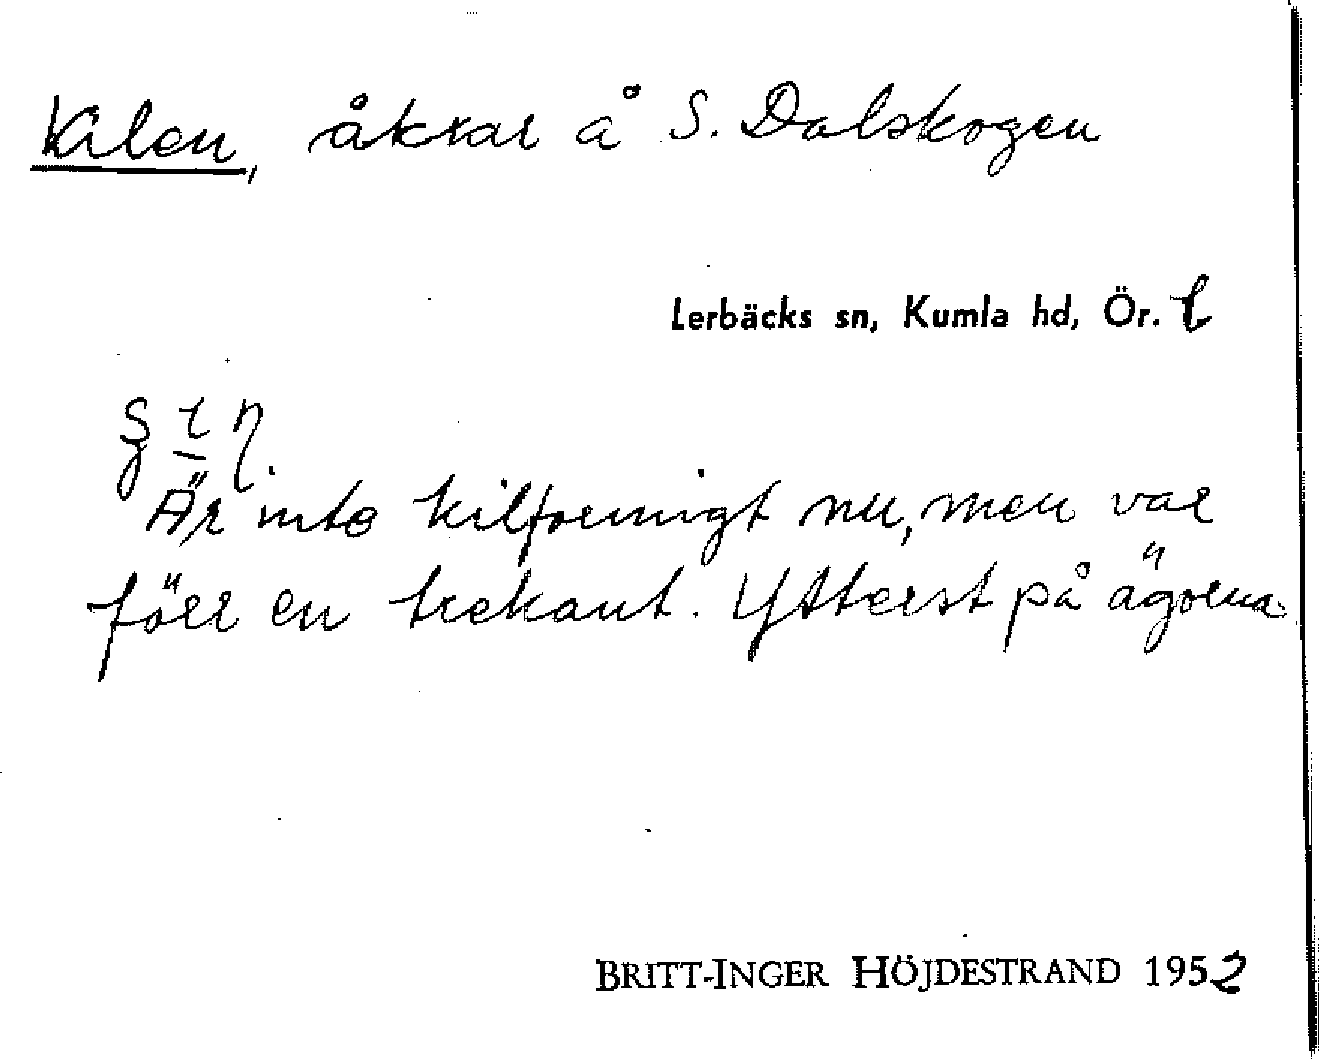 Kilen, åkrar å S. Dalskogen
Lerbäcks sn, Kumla hd, Ör. l
Är inte kilformigt nu, men var
förr en trekant. Ytterst på ägorna.
BRITT-INGER HÖJDESTRAND 1952